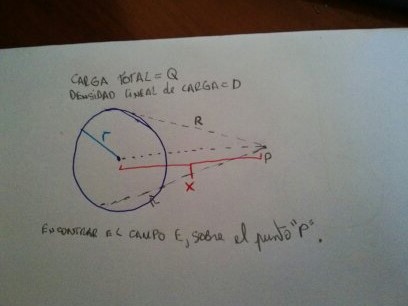 CARGA TOTAL = Q
DENSIDAD LINEAL de CARGA = D
R
r
P
X
R
ENCONTRAR EL CAMPO E, sobre el punto "P".